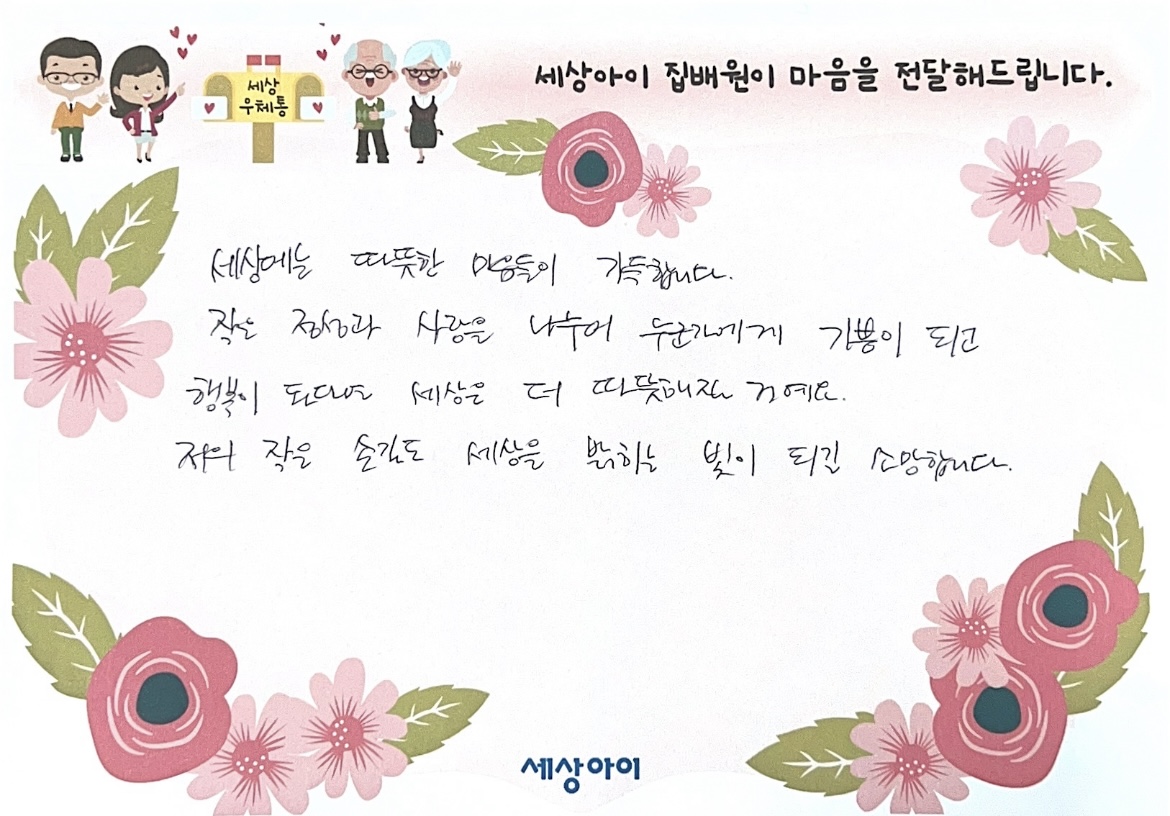 세상아이 집배원이 마음을 전달해드립니다.
세상
우체통
세상에는 따뜻한 마음들이 가득합니다.
작은 정성과 사랑을 나누어 누군가에게 기쁨이 되고
행복이 된다면 세상은 더 따뜻해지는 거예요.
저의 작은 손길도 세상을 밝히는 빛이 되길 소망합니다.
세상아이